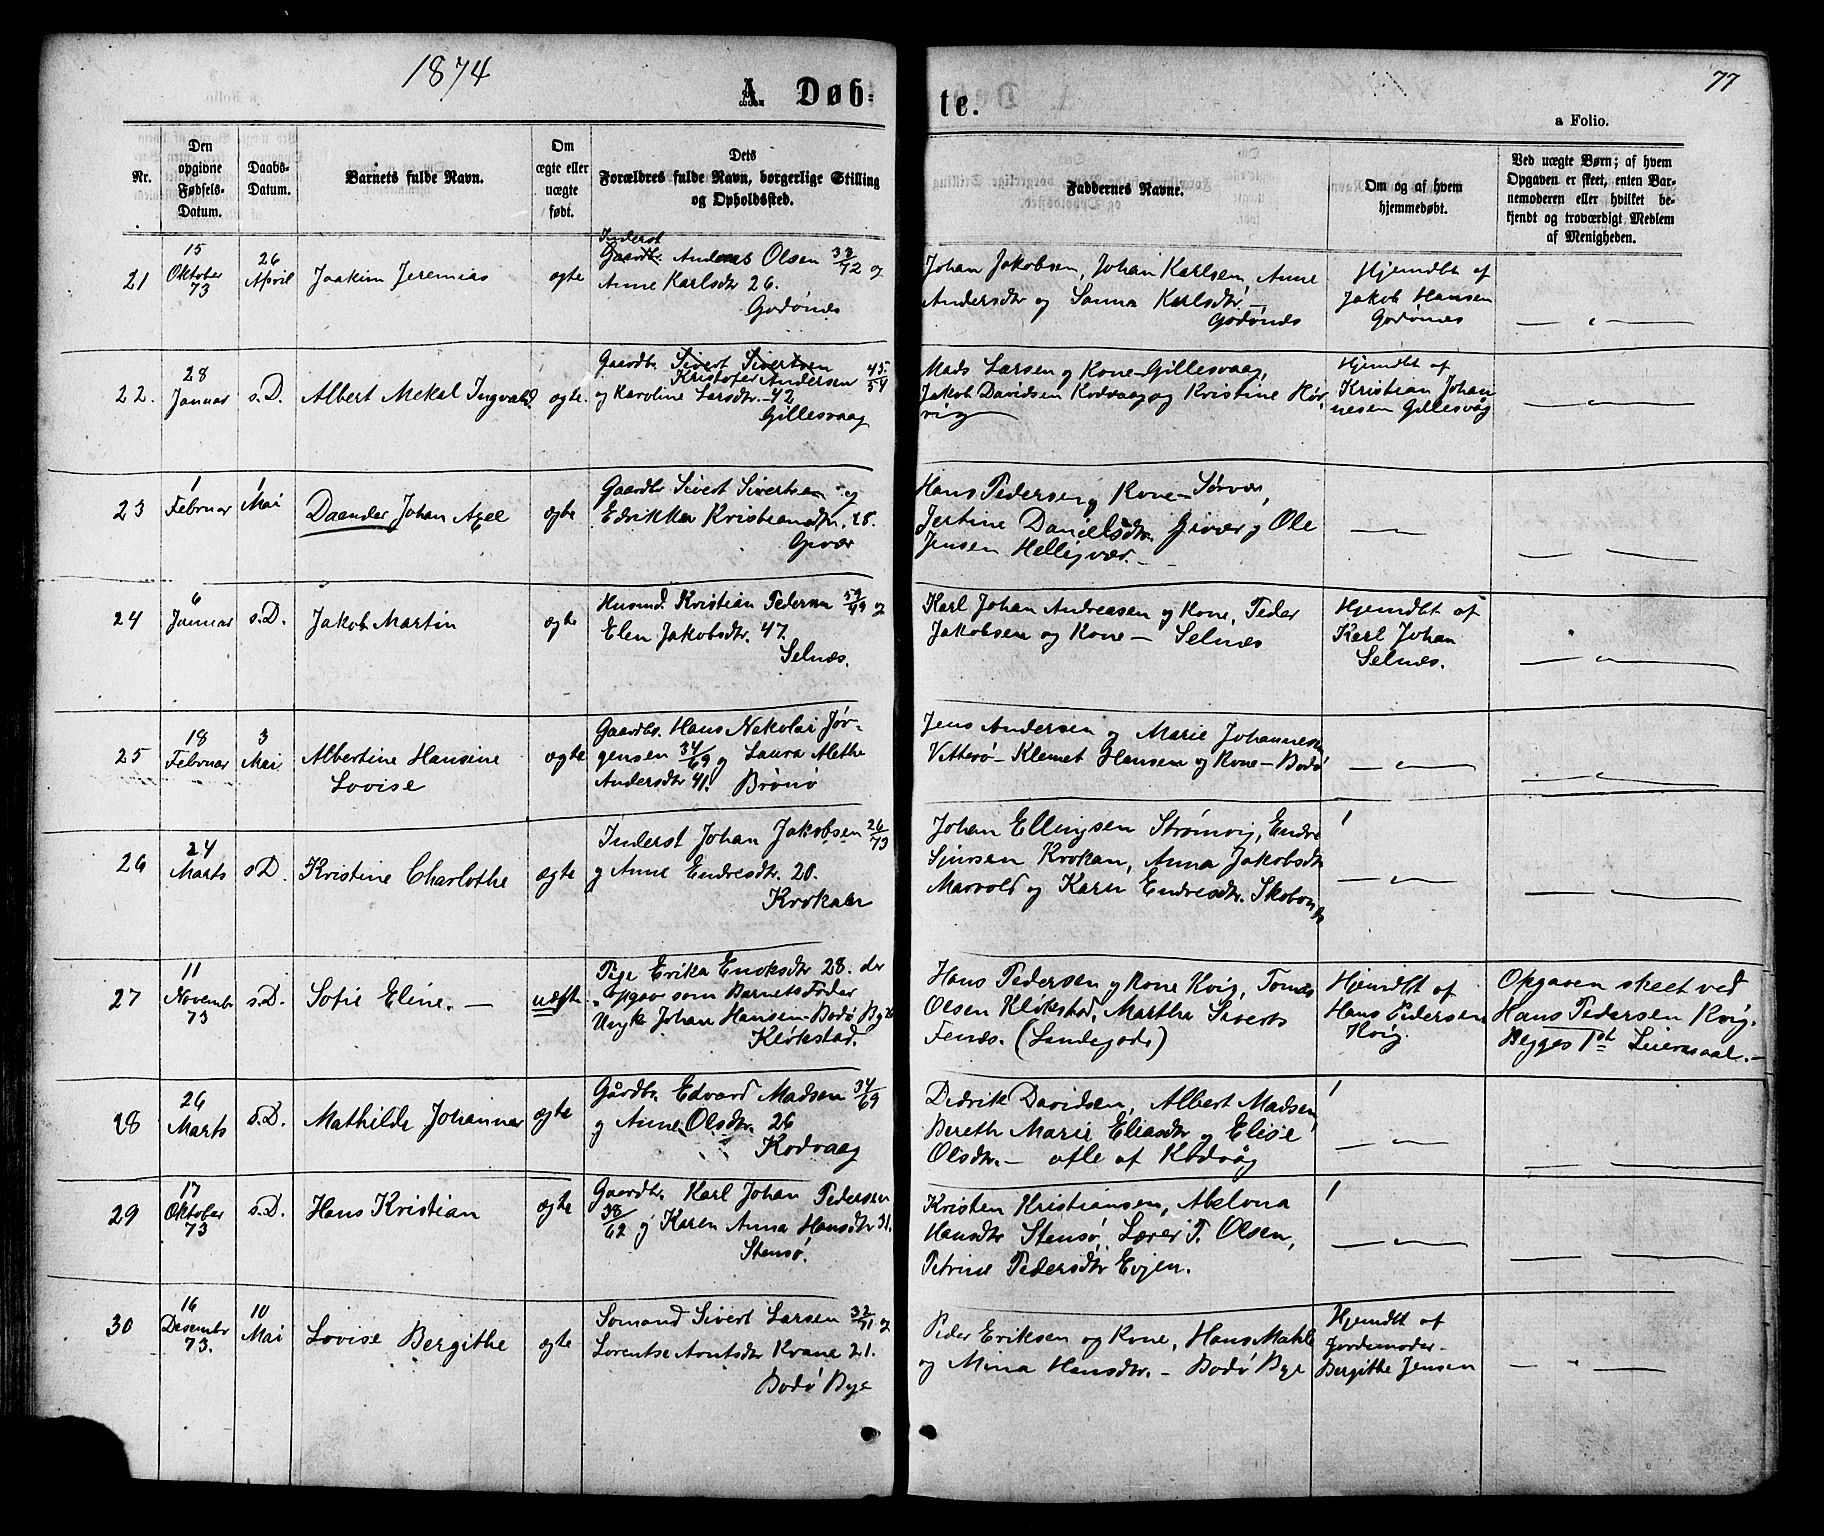 1874
A. Døb-
te.
77
a Folio.
Nr.
Den opgivne Fødsels-Datum.
Daabs-Datum.
Barnets fulde Navn.
Om ægte eller uægte født.
Dets Forældres fulde Navn, borgerlige Stilling og Opholdssted.
Faddernes Navne.
Om og af hvem hjemmedøbt.
Ved uægte Børn; af hvem Opgaven er skeet, enten Barnemoderen eller hvilket bekjendt og troværdigt Medlem af Menigheden.
21
15 Oktober 73
26 April
Joakim Jeremias
ægte
Inderst
Gaardb. Andreas Olsen 33/72 og
Anne Karlsdtr 26.
Godønes
Johan Jakobsen, Johan Karlsen, Anne
Andersdtr og Sanna Karlsdtr.—
Godønes
Hjemdbt af
Jakob Hansen
Godønes
22.
28 Januar
s.D.
Albert Mekal Ingvald.
ægte.
Gaardb. Sivert Sivertsen 45/54
Kristofer Andersen
og Karoline Larsdtr. 42
Gillesvaag
Mads Larsen og Kone-Gillesvaag,
Jakob Davidsen Kodvaag og Kristine Hør,
vig
Hjemdbt af
Kristian Johan
nesen Gillesvåg
23
1 Februar
1 Mai
Daander Johan Axel
ægte
Gaardbr Sivert Sivertsen og
Edrikka Kristiansdtr. 28.
Givær
Hans Pedersen og Kone- Sørvær,
Jertine Danielsdtr. Givær og Ole
Jensen Helligvær.—
24
6 Januar
s.D.
Jakob Martin
ægte
Husmd. Kristian Pedersen 59/49 og
Elen Jakobsdtr. 47.
Selnæs.
Karl Johan Andreasen og Kone, Peder
Jakobsen og Kone— Selnæs
Hjemdbt af
Karl Johan
Selnæs.
25
18 Februar
3 Mai
Albertine Hansine
Lovise
ægte
Gaardbr. Hans Nekolai Jør-
gensen 34/69 og Laura Alethe
Andersdtr 41. Brønø
Jens Andersen og Marie Johannesen
Vitterø- Klemet Hansen og Kone— Bodø
26
24 Marts
s.D.
Kristine Charlothe
ægte
Inderst Johan Jakobsen 26/73
og Anne Endresdtr. 20.
Krokaler
Johan Ellingsen Strømvig, Endre
Sjursen Krokan, Anna Jakobsdtr
Marvold og Karen Endresdtr. Skobon
27
11 November 73
s.D.
Sofie Eline.—
uægte
Pige Erika Enoksdtr 28. der
opgav som Barnets Fader
Ungk. Johan Hansen- Bodø By
Kløkstad.
Hans Pedersen og Kone Kvig, Tomas
Olsen Kløkstad, Marthe Siverts
Fenæs. (Landegode)
Hjemdbt af
Hans Pedersen
Kvig.
Opgaven skeet ved
Hans Pedersen Kvig.
Begges 1st Leiermaal.—
28
26 Marts
s.D.
Mathilde Johanna
ægte
Gårdbr. Edvard Madsen 34/69
og Anne Olsdtr. 26
Kodvaag
Didrik Davidsen, Albert Madsen,
Bereth Marie Eliasdtr og Elise
Olsdtr.— alle af Kodvåg
29
17 Oktober 73
s.D.
Hans Kristian
ægte
Gaardbr. Karl Johan Pedersen
38/62 og Karen Anna Hansdtr 31.
Stensø.
Kristen Kristiansen, Abelona
Hansdtr Stensø, Lærer T. Olsen,
Petrine Pedersdtr Evjen.
30
16 Desember 73.
10 Mai
Lovise Bergithe
ægte
Sømand Sivert Larsen 32/71 og
Lorentse Arntsdtr Kvane 21.
Bodø Bye
Peder Eriksen og Kone, Hans Mahle
og Mina Hansdtr.— Bodø Bye
Hjemdbt af
Jordemoder
Bergithe Jensen